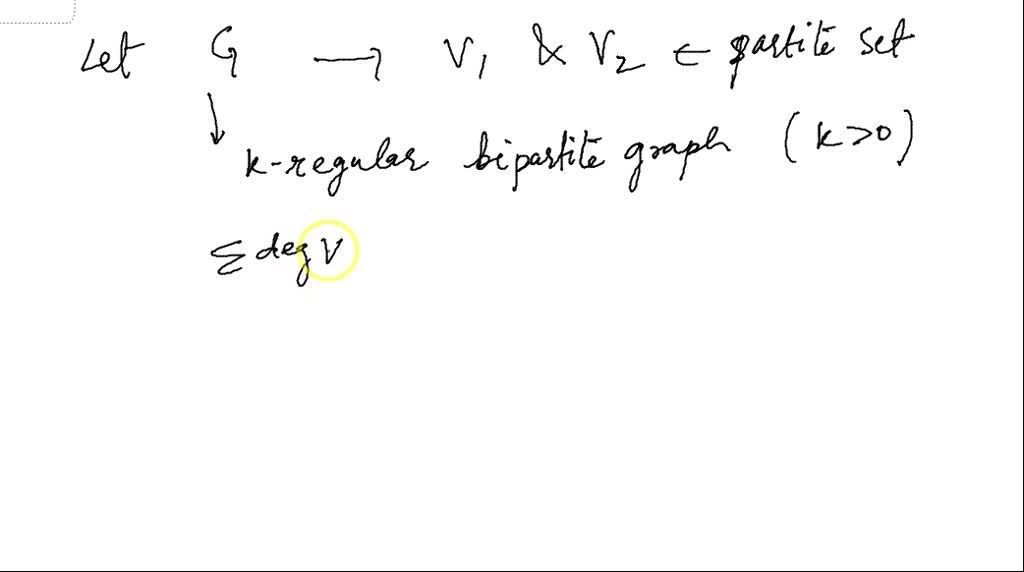 Let G → V₁ & V₂ ← partite set
↓ k-regular bipartite graph (k>0)
Σ deg V